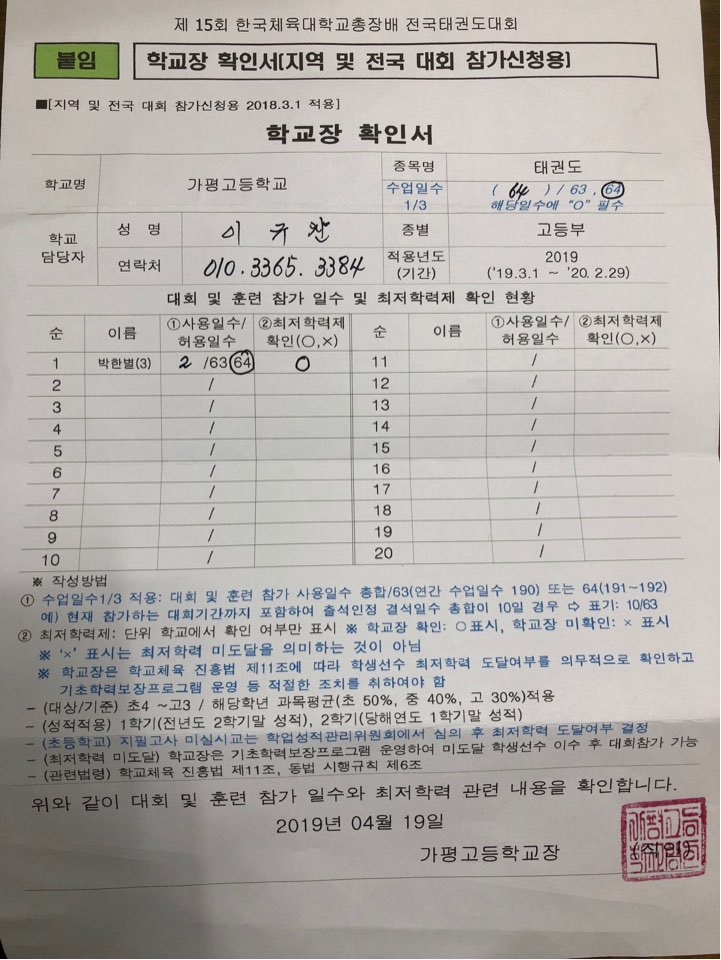 제 15회 한국체육대학교총장배 전국태권도대회
붙임
학교장 확인서[지역 및 전국 대회 참가신청용]
■[지역 및 전국 대회 참가신청용 2018.3.1 적용]
학교장 확인서
학교명 가평고등학교 종목명 태권도
수업일수 1/3 ( 64 ) / 63 , 64
해당일수에 "O" 필수
학교 담당자 성 명 이규찬 종별 고등부
연락처 010. 3365. 3384 적용년도 (기간) 2019
('19.3.1 ~ '20. 2.29)
대회 및 훈련 참가 일수 및 최저학력제 확인 현황
순 이름 ①사용일수/허용일수 ②최저학력제 확인(○,×) 순 이름 ①사용일수/허용일수 ②최저학력제 확인(○,×)
1 박한별(3) 2 /63 64 O 11 /
2 / 12 /
3 / 13 /
4 / 14 /
5 / 15 /
6 / 16 /
7 / 17 /
8 / 18 /
9 / 19 /
10 / 20 /
※ 작성방법
① 수업일수1/3 적용: 대회 및 훈련 참가 사용일수 총합/63(연간 수업일수 190) 또는 64(191~192)
예) 현재 참가하는 대회기간까지 포함하여 출석인정 결석일수 총합이 10일 경우 ⇨ 표기: 10/63
② 최저학력제: 단위 학교에서 확인 여부만 표시 ※ 학교장 확인: ○표시, 학교장 미확인: × 표시
※ '×' 표시는 최저학력 미도달을 의미하는 것이 아님
※ 학교장은 학교체육 진흥법 제11조에 따라 학생선수 최저학력 도달여부를 의무적으로 확인하고
기초학력보장프로그램 운영 등 적절한 조치를 취하여야 함
- (대상/기준) 초4 ~고3 / 해당학년 과목평균(초 50%, 중 40%, 고 30%)적용
- (성적적용) 1학기(전년도 2학기말 성적), 2학기(당해연도 1학기말 성적)
- (초등학교) 지필고사 미실시교는 학업성적관리위원회에서 심의 후 최저학력 도달여부 결정
- (최저학력 미도달) 학교장은 기초학력보장프로그램 운영하여 미도달 학생선수 이수 후 대회참가 가능
- (관련법령) 학교체육 진흥법 제11조, 동법 시행규칙 제6조
위와 같이 대회 및 훈련 참가 일수와 최저학력 관련 내용을 확인합니다.
2019년 04월 19일
가평고등학교장 (직인)